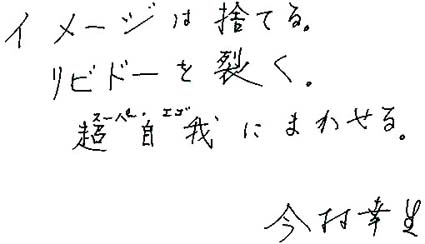 イメージは捨てる。
リビドーを裂く。
スーパー・エゴ
超自我にまかせる。
今村幸生